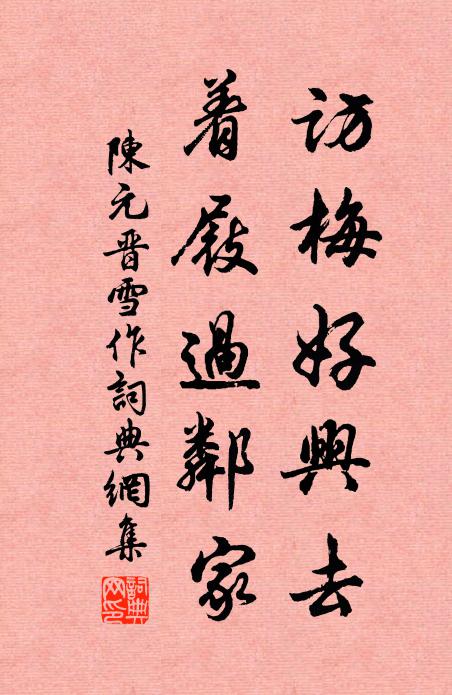 訪梅好興去
着屐過鄰家
陳元晋雪作詞典網集
詞典網印